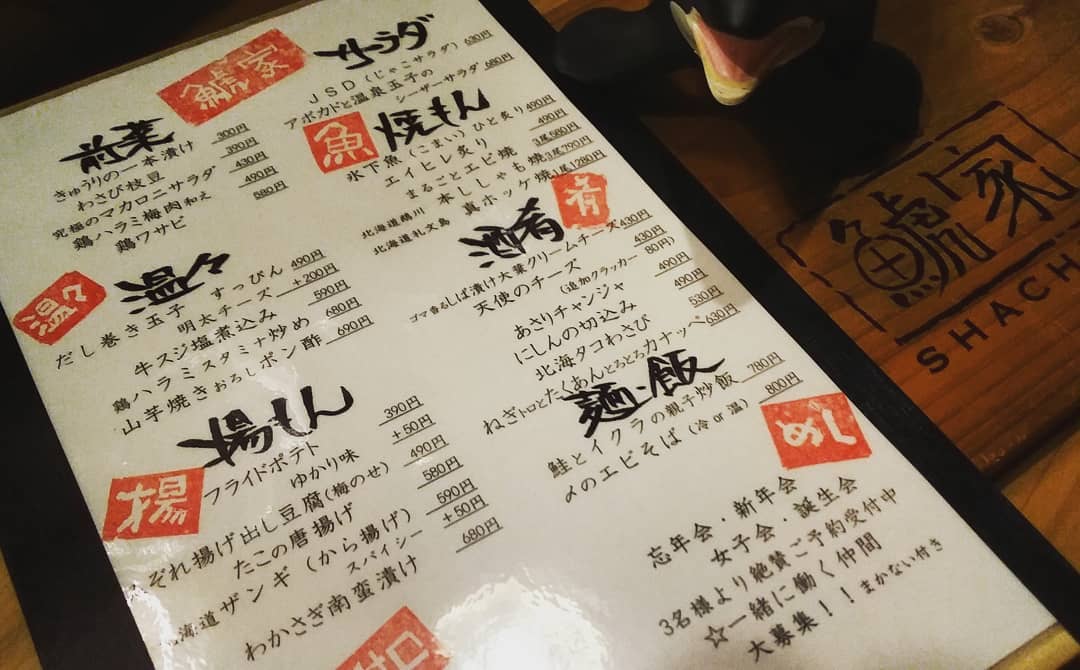 鯱家
前菜
きゅうりの一本漬け 300円
わさび枝豆 390円
究極のマカロニサラダ 430円
鶏ハラミ梅肉和え 490円
鶏ワサビ 580円
温々
温々
だし巻き玉子 すっぴん 490円
明太チーズ +200円
牛スジ塩煮込み 590円
鶏ハラミスタミナ炒め 680円
山芋焼きおろしポン酢 690円
揚もん
揚
フライドポテト 390円
ゆかり味 +50円
ぞれ揚げ出し豆腐(梅のせ) 490円
たこの唐揚げ 580円
北海道ザンギ(から揚げ) 590円
スパイシー +50円
わかさぎ南蛮漬け 680円
サラダ
JSD(じゃこサラダ) 630円
アボカドと温泉玉子の
シーザーサラダ 680円
魚
焼もん
氷下魚(こまい)ひと炙り 490円
エイヒレ炙り 490円
まるごとエビ焼 3尾580円
北海道鵡川 本ししゃも焼 3尾790円
北海道礼文島 真ホッケ焼 1尾1280円
酒肴
肴
ゴマ香るしば漬け大葉クリームチーズ 430円
天使のチーズ 430円
(追加クラッカー 80円)
あさりチャンジャ 490円
にしんの切込み 490円
北海タコわさび 530円
ねぎトロとたくあんとろとろカナッペ 630円
麺・飯
めし
鮭とイクラの親子炒飯 780円
〆のエビそば(冷 or 温) 800円
忘年会・新年会
女子会・誕生会
3名様より絶賛ご予約受付中
☆一緒に働く仲間
大募集!!まかない付き
鯱家
SHACH